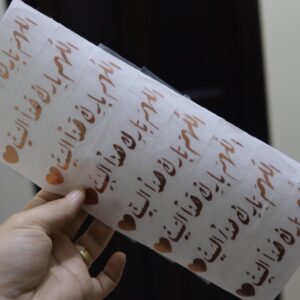 اللهم بارك هذا البيت
اللهم بارك هذا البيت
اللهم بارك هذا البيت
اللهم بارك هذا البيت
اللهم بارك هذا البيت
اللهم بارك هذا البيت